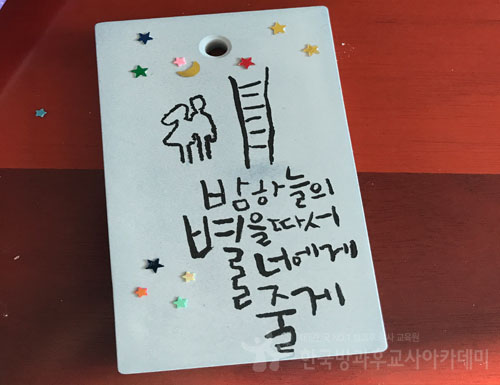 밤하늘의
별을따서
너에게
줄게
한국방과후교사아카데미